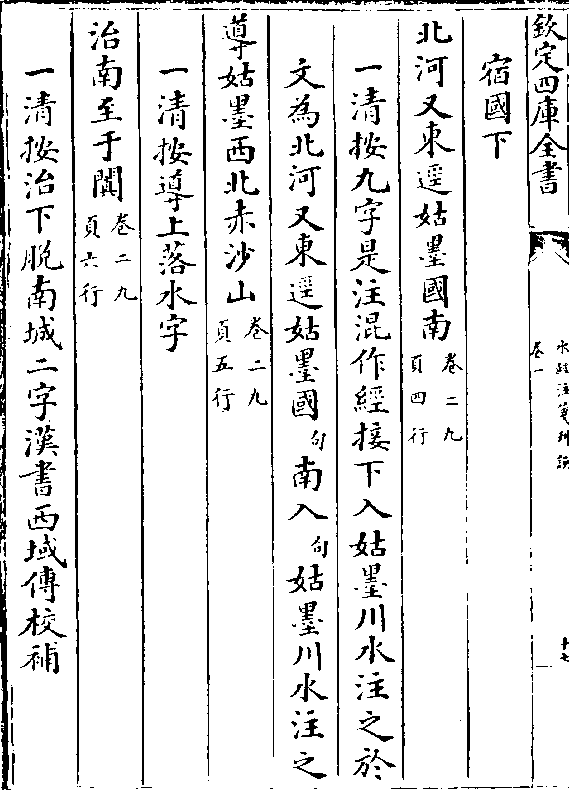 欽定四庫全書
水經注箋刊誤
卷一
十七
宿國下
北河又東逕姑墨國南卷二九頁四行
一清按九字是注混作經接下入姑墨川水注之於
文為北河又東逕姑墨國句南入句姑墨川水注之
導姑墨西北赤沙山卷二九頁五行
一清按導上落水字
治南至于闐卷二九頁六行
一清按治下脫南城二字漢書西域傳校補